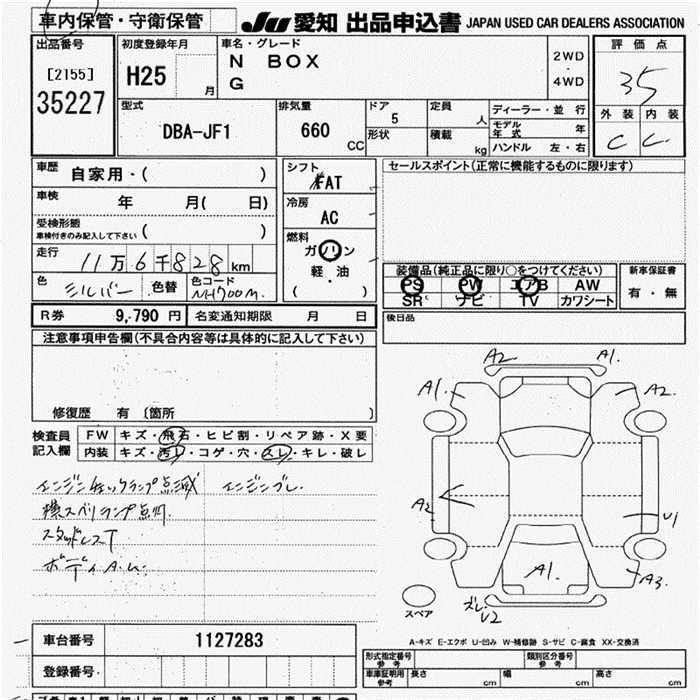 車内保管・守衛保管
JU 愛知 出品申込書 JAPAN USED CAR DEALERS ASSOCIATION
出品番号
[2155]
35227
初度登録年月
H25 月
車名・グレード
N BOX
G
2WD
・
4WD
評価点
3.5
外装 内装
C C
型式
DBA-JF1
排気量
660 CC
ドア
5
形状
定員
人
積載
kg
ディーラー・並行
モデル年式 年
ハンドル 左・右
車歴
自家用・( )
車検
年 月( 日)
受検形態
車検付きのみ記入して下さい ( )
走行
11万6千828km
色
シルバー
色替
色コード
NH700M
シフト
FAT
冷房
AC
燃料
ガソリン
軽・油
( )
セールスポイント(正常に機能するものに限ります)
装備品(純正品に限り○をつけてください)
PS PW エアB AW
SR ナビ TV カワシート
新車保証書
有・無
後日品
R券 9,790 円
名変通知期限 月 日
注意事項申告欄(不具合内容等は具体的に記入して下さい)
修復歴 有 〔箇所 〕
検査員
記入欄
FW キズ・飛石・ヒビ割・リペア跡・X要
内装 キズ・汚レ・コゲ・穴・スレ・キレ・破レ
エンジンチェックランプ点滅 エンジンブレ
横スベリランプ点灯
スタッドレスT
ボディA.U.
A2 A1.
A1 A2.
A2
U1
A1.
A3
ズレ
U2
スペア
A-キズ E-エクボ U-凹み W-補修跡 S-サビ C-腐食 XX-交換済
車台番号 1127283
登録番号
形式指定番号
参考
類別区分番号
参考
車庫証明用
参考
長さ 幅 高さ